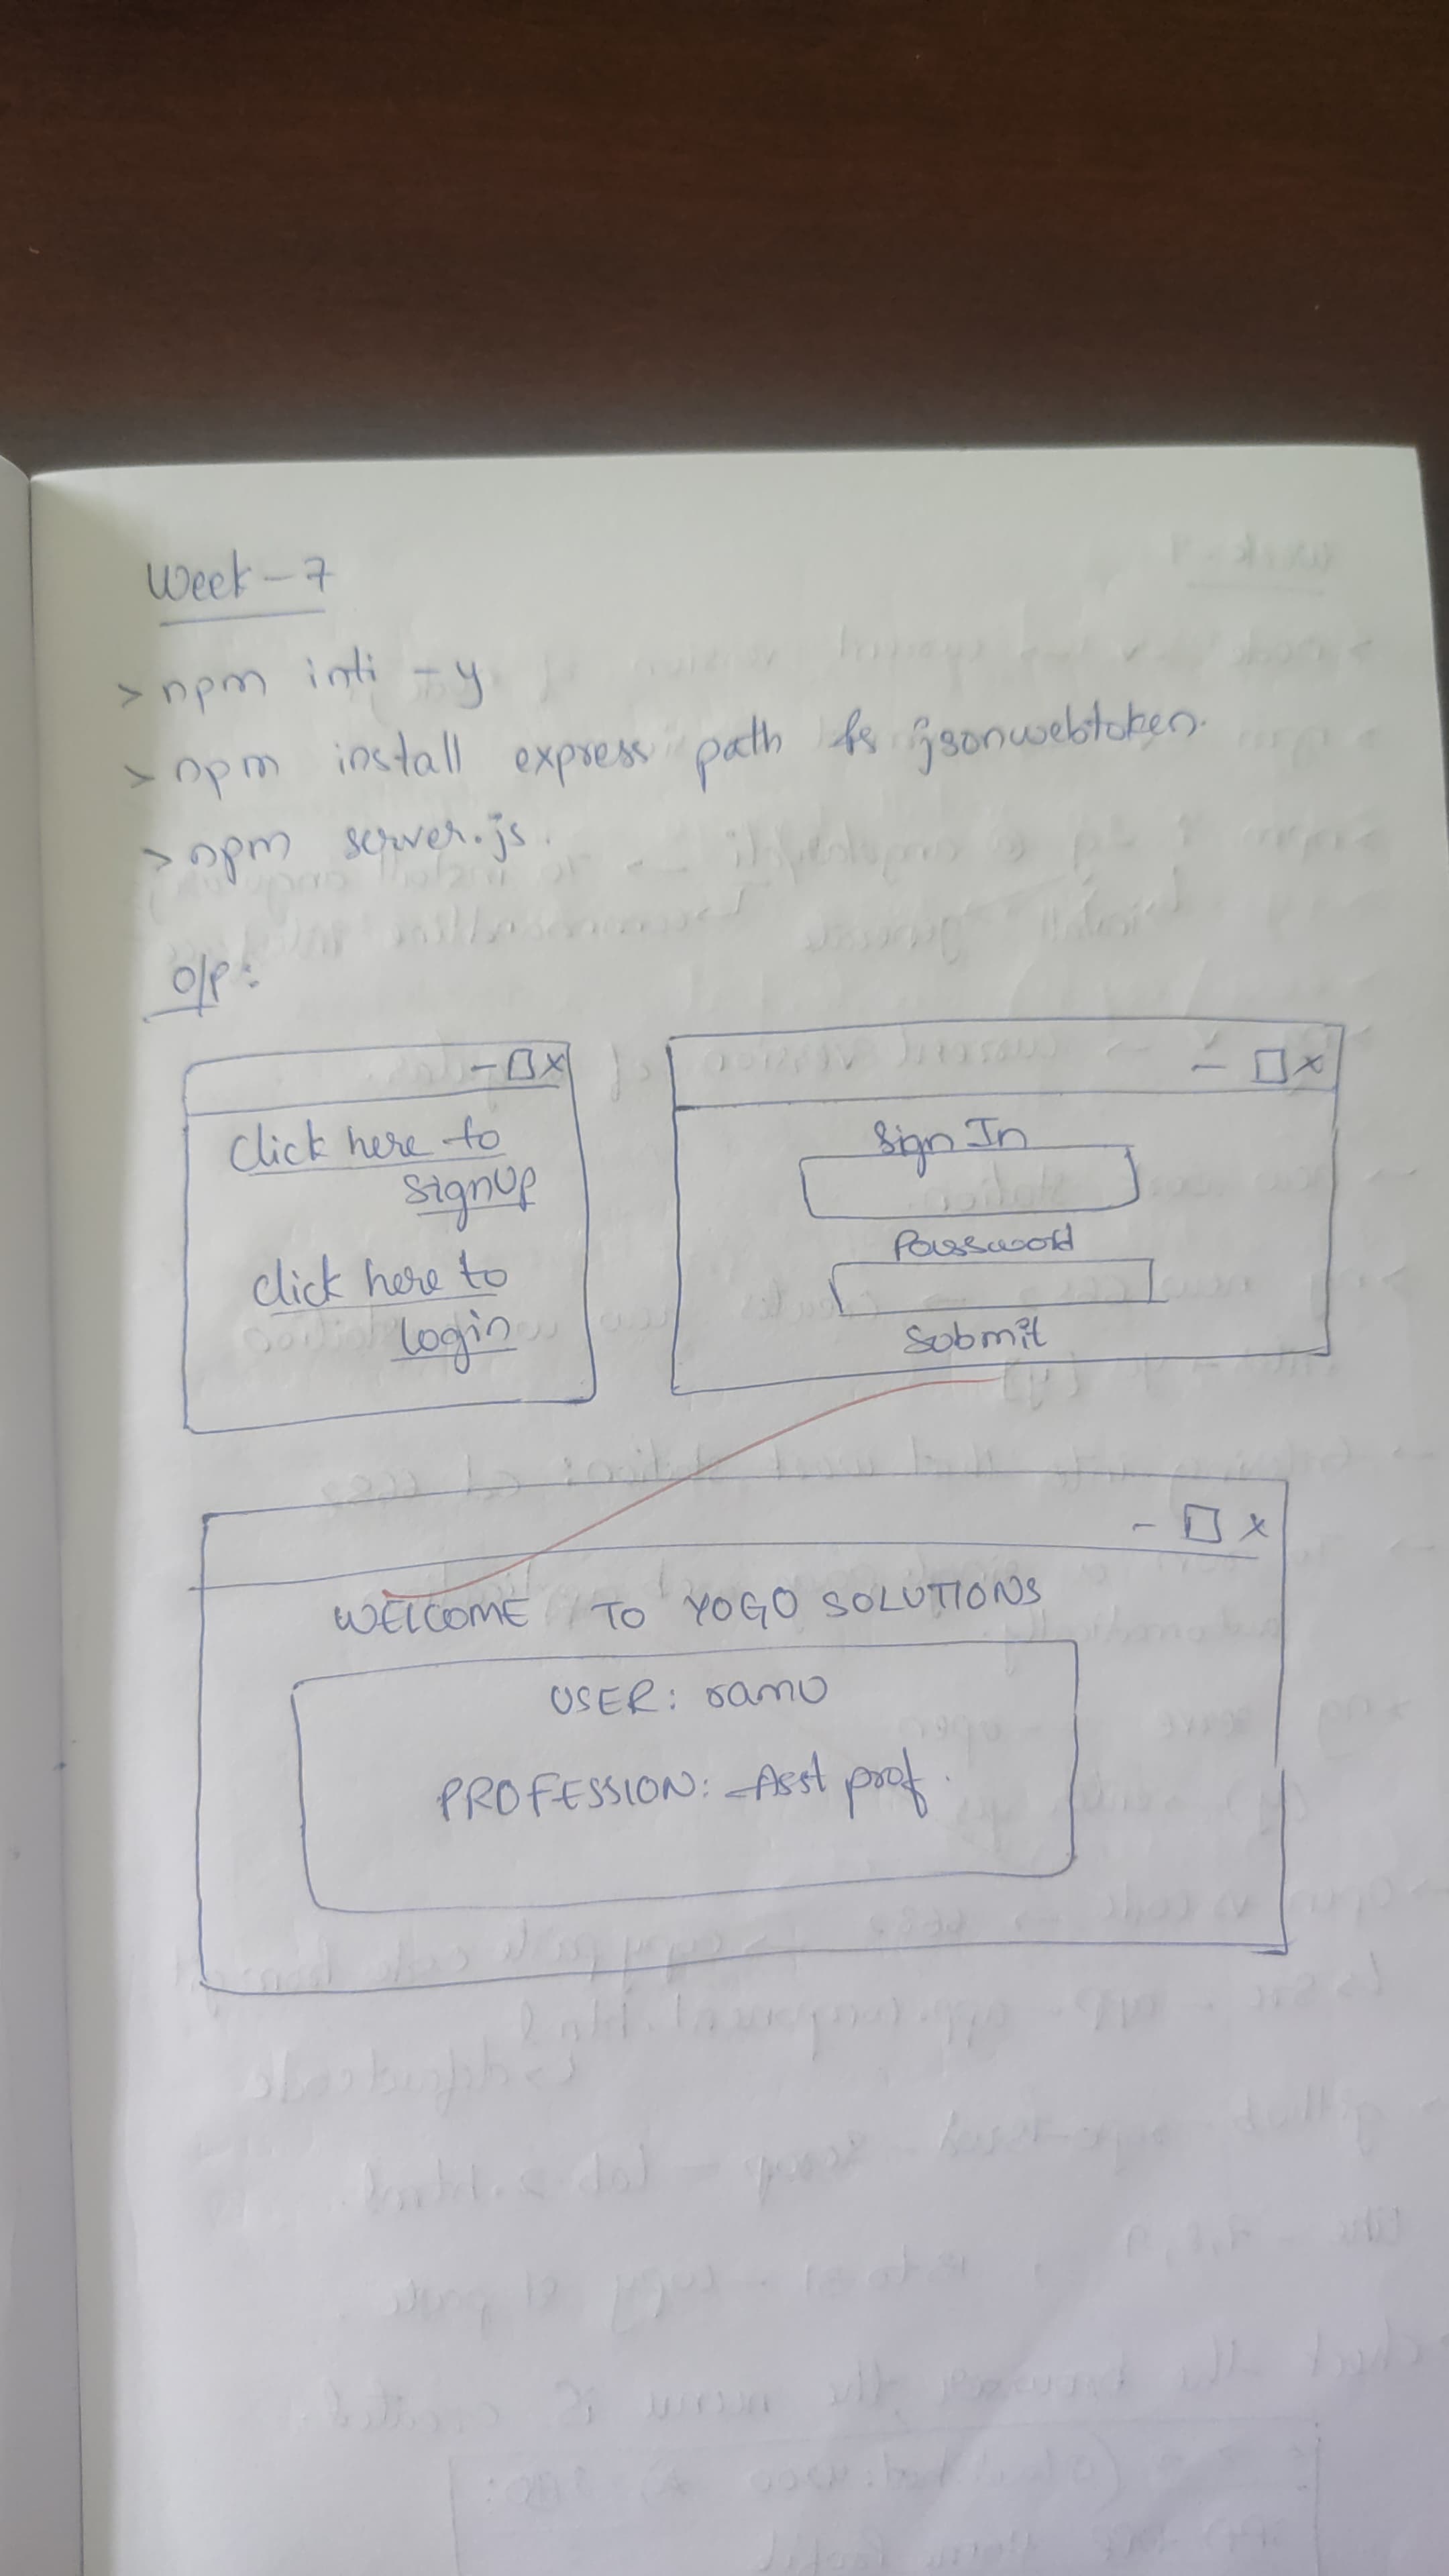 Week-7
> npm inti -y
> npm install express path fs jsonwebtoken.
> npm server.js.
O/P:
- □ x
Click here to
signup
click here to
login
- □ x
Sign In
Password
Submit
- □ x
WELCOME TO YOGO SOLUTIONS
USER: ramu
PROFESSION: Asst prof.